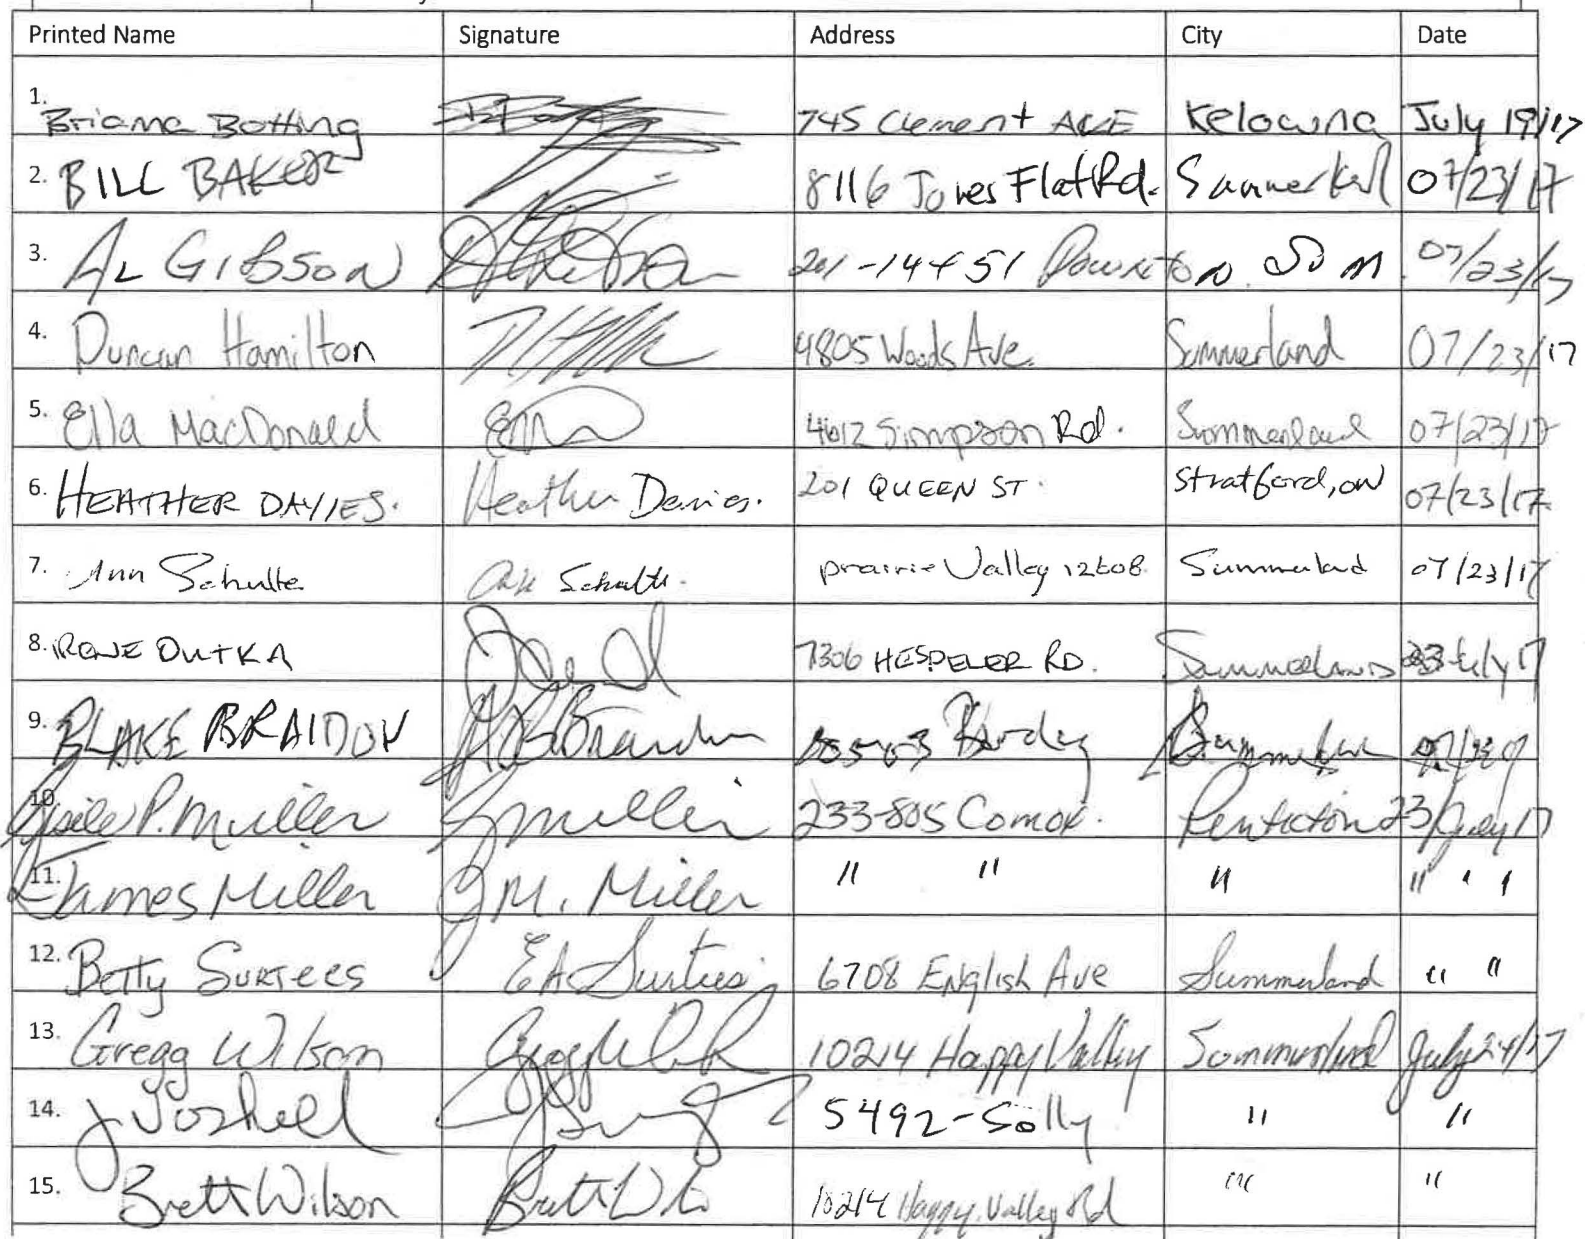 Printed Name Signature Address City Date
1. Briana Botting 745 Clement AVE Kelowna July 19/17
2. BILL BAKER 8116 Jones Flat Rd. Summerland 07/23/17
3. AL GIBSON 201-14451 Downton Sum 07/23/17
4. Duncan Hamilton 4805 Woods Ave. Summerland 07/23/17
5. Ella MacDonald 4612 Simpson Rd. Summerland 07/23/17
6. HEATHER DAVIES. Heather Davies. 201 QUEEN ST. Stratford, ON 07/23/17
7. Ann Schulte Ann Schulte. prairie Valley 12608 Summerland 07/23/17
8. IRENE DUTKA 7306 HESPELER RD. Summerland 23 July 17
9. BLAKE BRAIDON Summerland
10. P. Muller Muller 233-805 Comox. Penticton 23/July 17
11. James Miller J M. Miller " " " " " "
12. Betty SURTEES EA Surtees 6708 English Ave Summerland " "
13. Gregg Wilson 10214 Happy Valley Summerland July 24/17
14. J 5492-Solly " "
15. Brett Wilson 10214 Happy Valley Rd " "